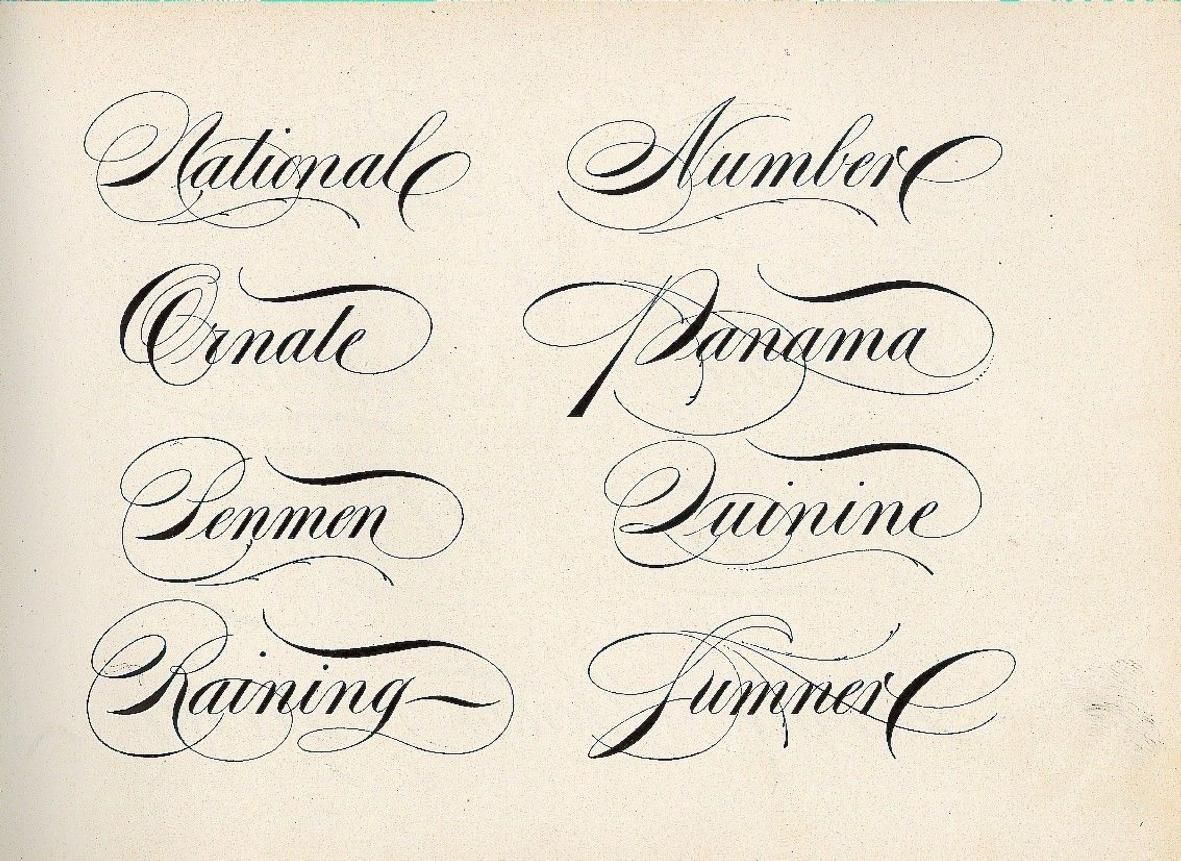 National Number
Ornate Panama
Penmen Quinine
Raining Sumner